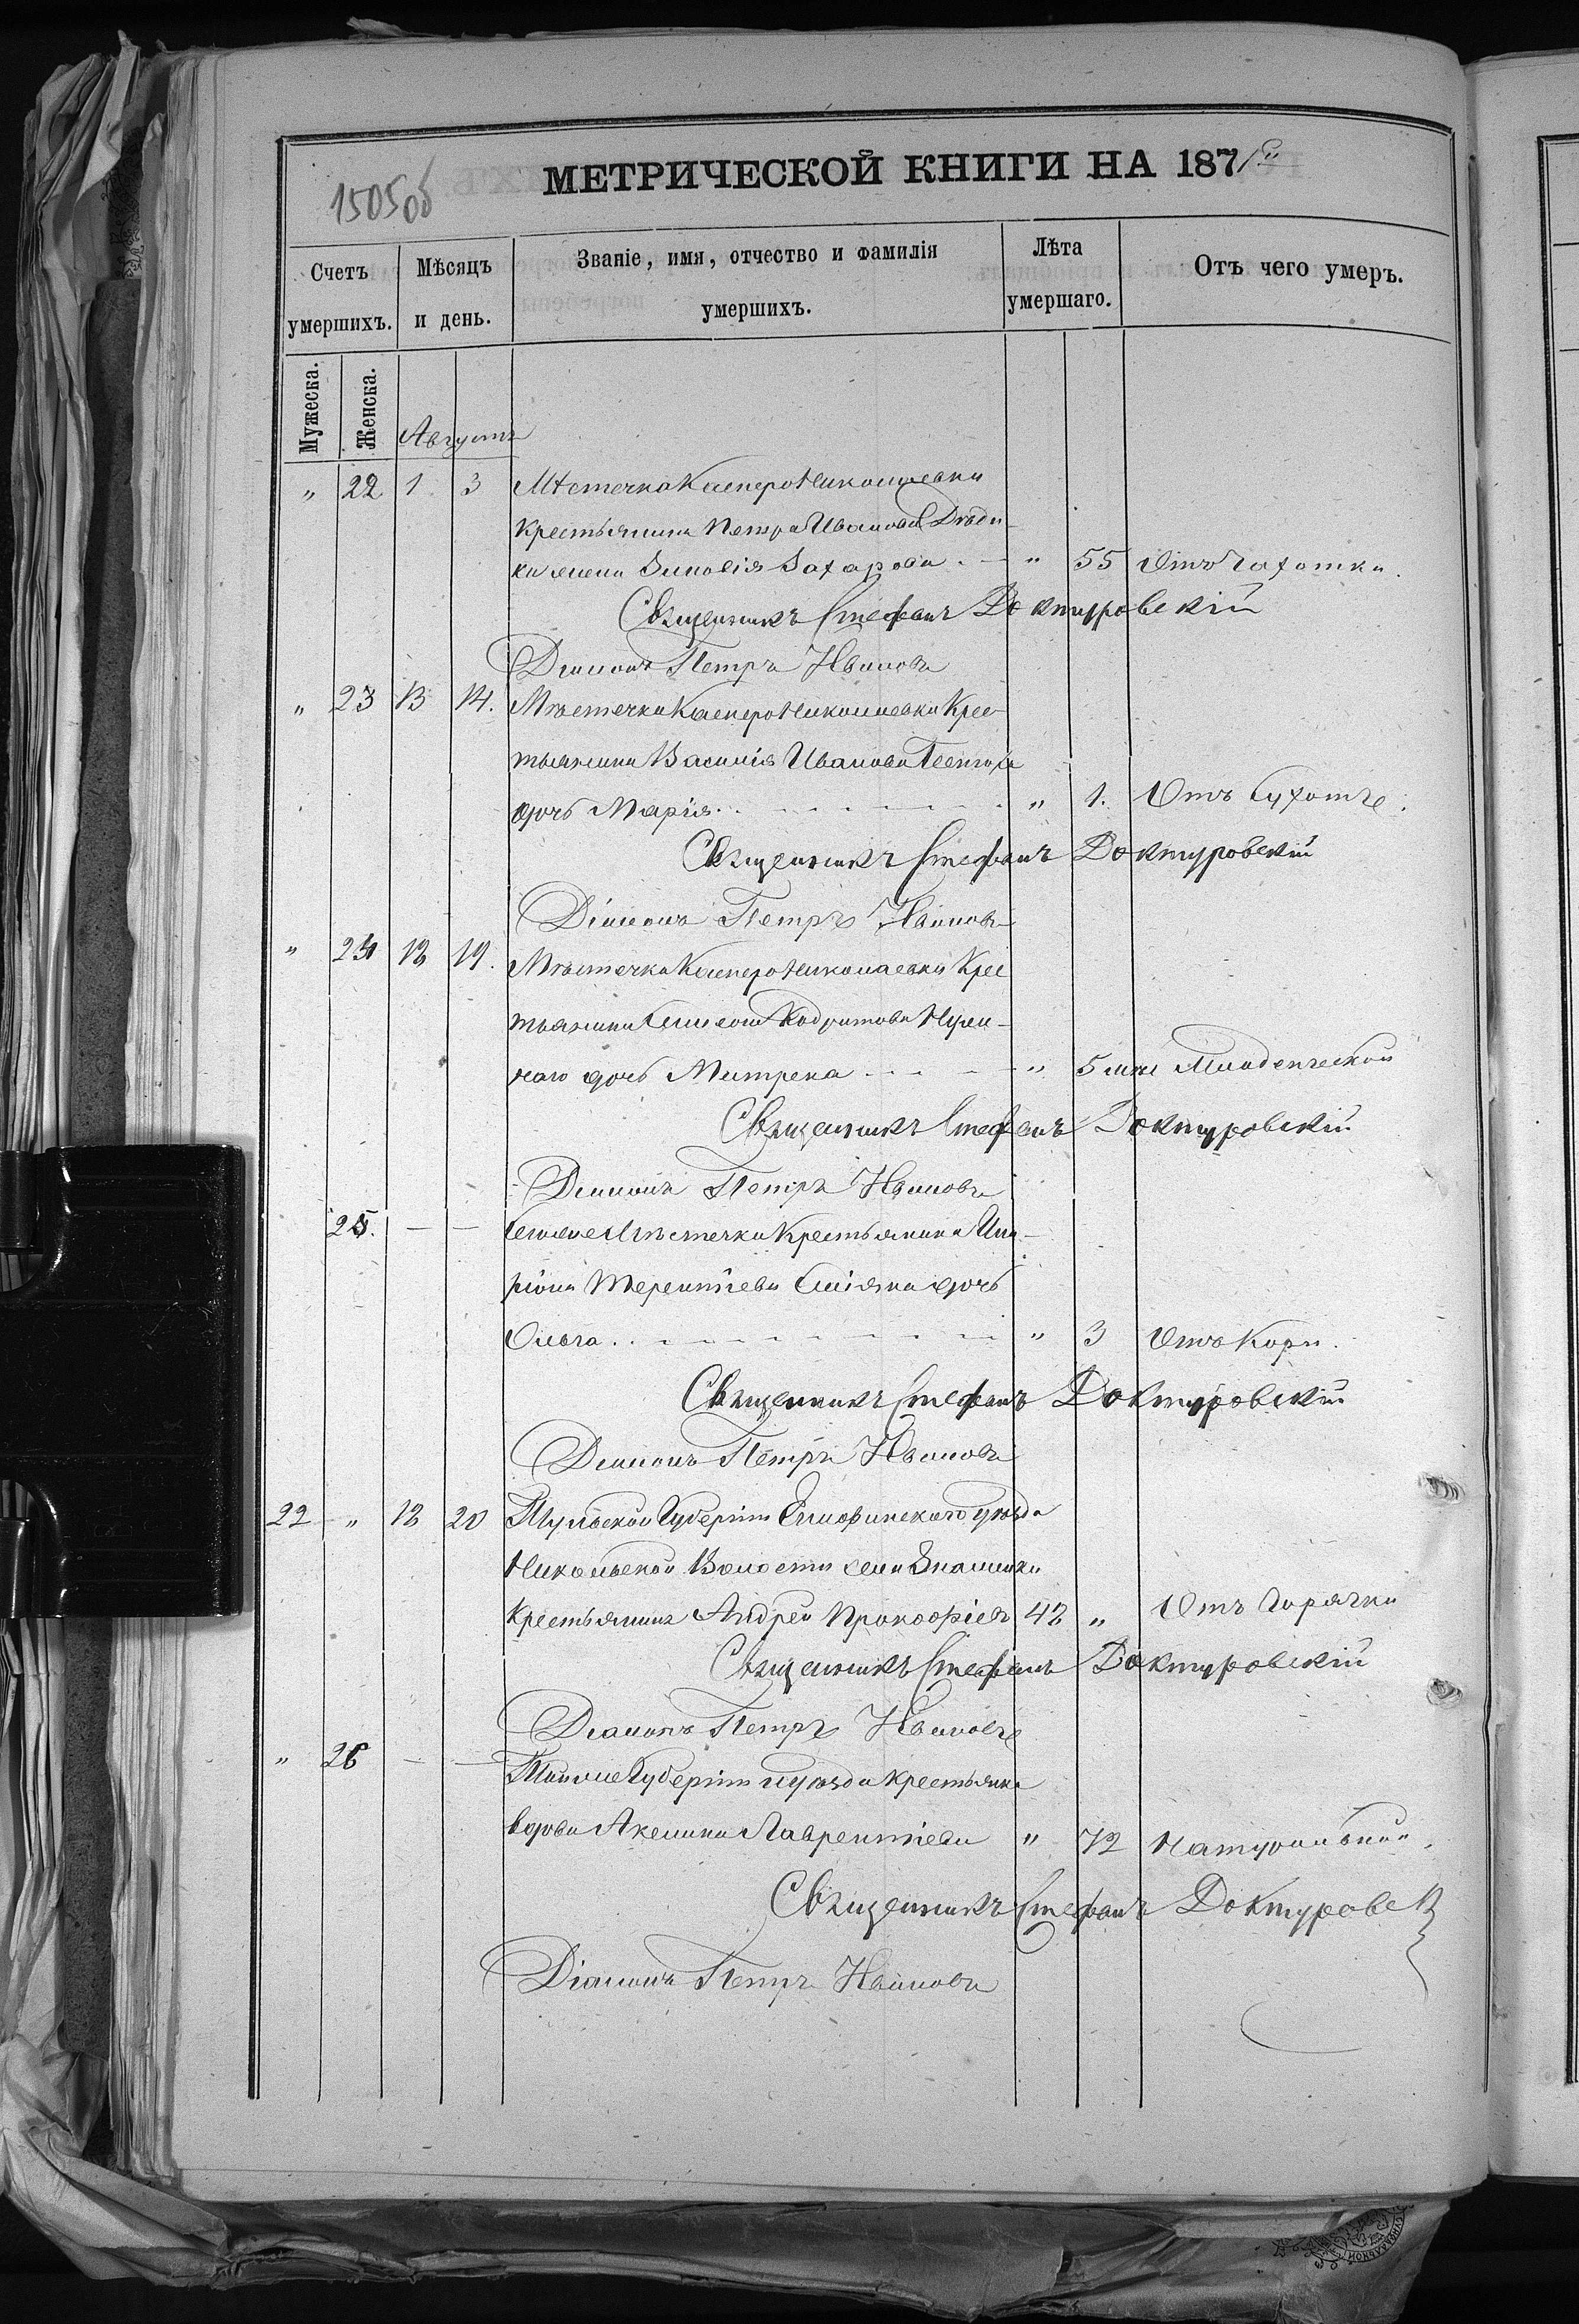 1505об
МЕТРИЧЕСКОЙ КНИГИ НА 1871й
Счетъ умершихъ.
Мѣсяцъ и день.
Званіе, имя, отчество и фамилія умершихъ.
Лѣта умершаго.
Отъ чего умеръ.
Мужеска.
Женска.
Августъ
" 22 1 3 Мѣстечка Касперо Николаевки
Крестьянина Петра Иванова
жена Зиновія Захарова " 55 Отъ Чахотки.
Священникъ Стефанъ Доктуровскій
Діаконъ Петръ Ивановъ
" 23 13 14. Мѣстечка Касперо Николаевки Крес
тьянина Василія Иванова
дочь Марія " 1. Отъ Сухотъ.
Священникъ Стефанъ Доктуровскій
Діаконъ Петръ Ивановъ
" 24 18 19. Мѣстечка Касперо Николаевки Крес
тьянина
дочь Митрена " 5 Младенческой
Священникъ Стефанъ Доктуровскій
Діаконъ Петръ Ивановъ
25. — — Мѣстечка Крестьянина Ила-
ріона Терентіева дочь
Ольга " 3 Отъ Кори.
Священникъ Стефанъ Доктуровскій
Діаконъ Петръ Ивановъ
22 " 18 20 Тульской Губерніи уѣзда
Никольской Волости села
Крестьянинъ Андрей Прокофіевъ 42 " Отъ Горячки
Священникъ Стефанъ Доктуровскій
Діаконъ Петръ Ивановъ
" 26 — — Тойже Губерніи и уѣзда Крестьянка
вдова Акелина Лаврентіева " 72 Натуральной.
Священникъ Стефанъ Доктуровск
Діаконъ Петръ Ивановъ